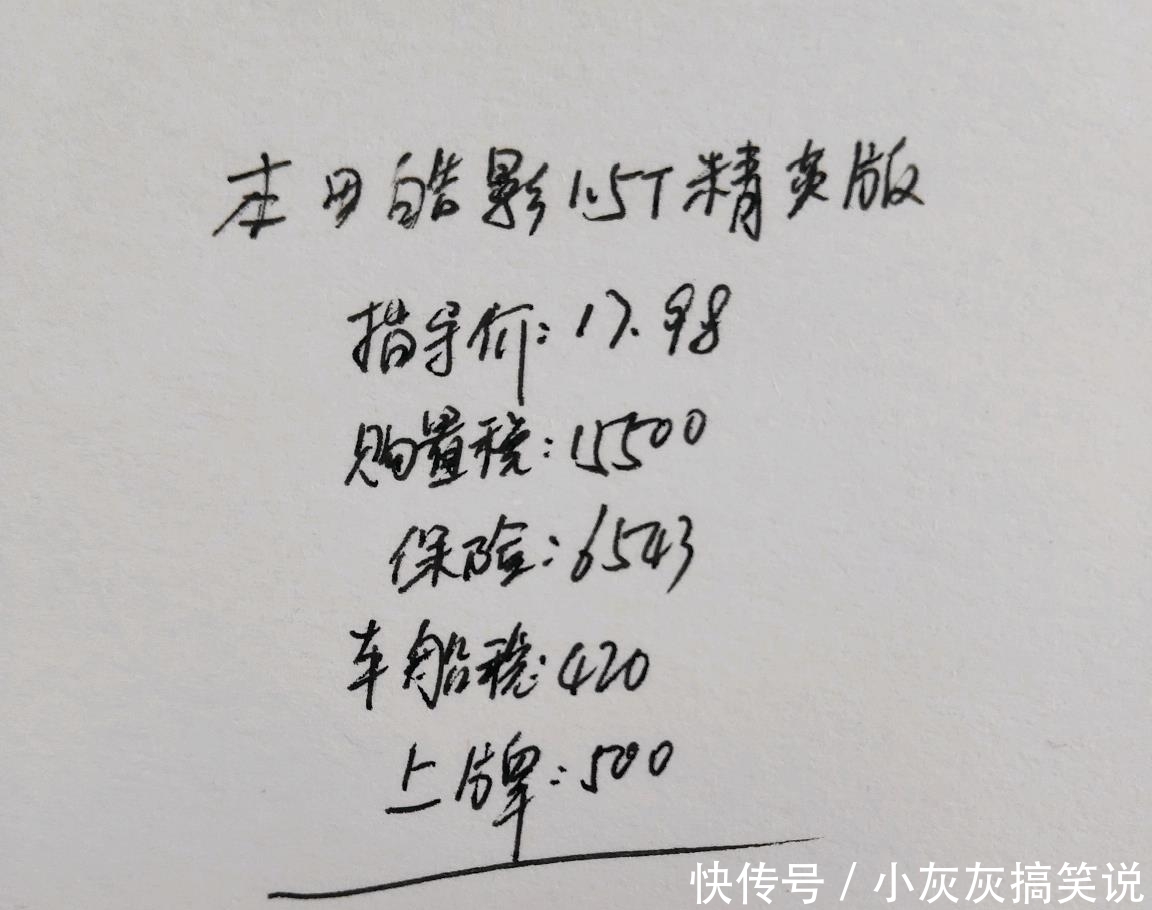 本田皓影1.5T精英版
指导价:17.98
购置税:15500
保险:6543
车船税:420
上牌:500
快传号/小灰灰搞笑说